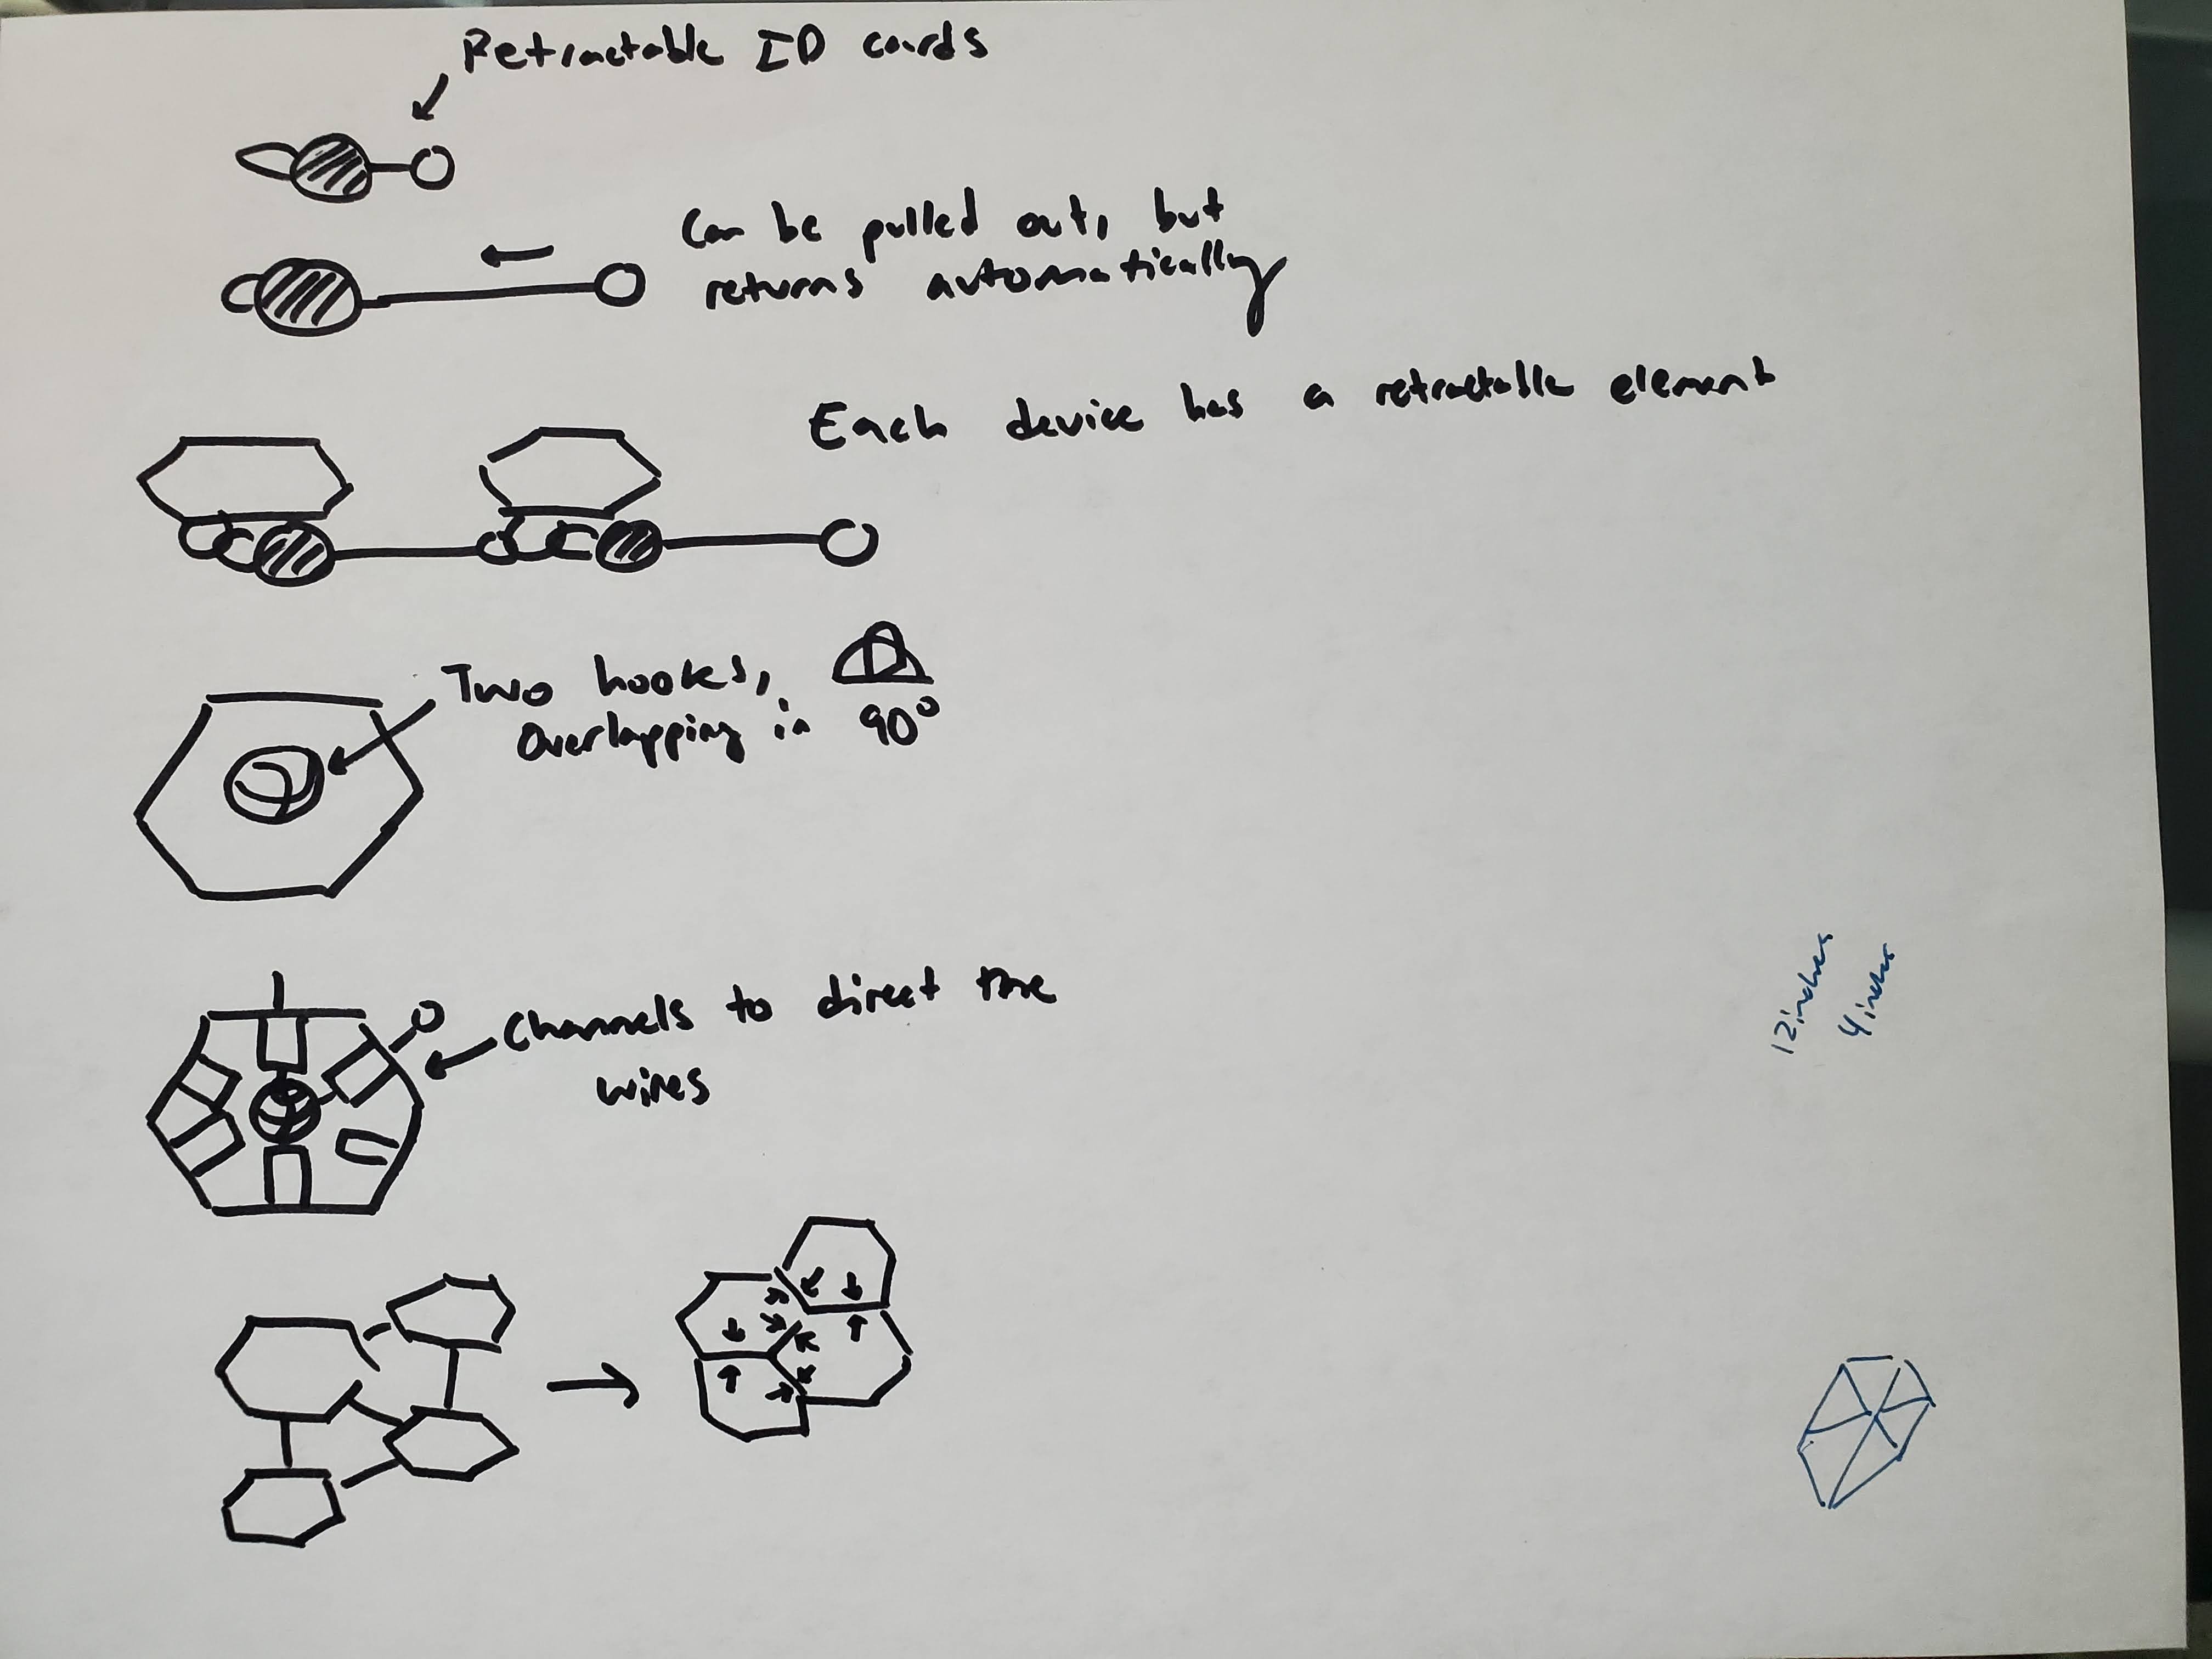 Retractable ID cards
Can be pulled out, but
returns automatically
Each device has a retractable element
Two hooks,
Overlapping in 90°
Channels to direct the
wires
12 inches
4 inches